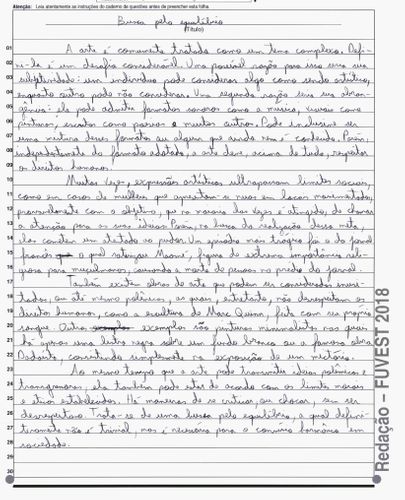 Atenção: Leia atentamente as instruções do caderno de questões antes de preencher esta folha
Busca pelo equilíbrio
(Título)
01 A arte é comumente tratada como um tema complexo. Defi-
02 ni-la é um desafio considerável. Uma possível razão para isso seria sua
03 subjetividade: um indivíduo pode considerar algo como sendo artístico,
04 enquanto outro pode não considerar. Uma segunda razão seria sua abran-
05 gência: ela pode admitir formatos sonoros como a música, visuais como
06 pinturas, escritos como poesias e muitos outros. Pode inclusive ser
07 uma mistura desses formatos ou algum que ainda não é conhecido. Porém,
08 independentemente do formato adotado, a arte deve, acima de tudo, respeitar
09 os direitos humanos.
10 Muitas vezes, expressões artísticas ultrapassam limites sociais,
11 como em casos de mulheres que apresentam-se nuas em locais movimentados,
12 provavelmente com o objetivo, que na maioria das vezes é atingido, de chamar
13 a atenção para as suas ideias. Porém, na busca da realização dessa meta,
14 elas cometem um atentado ao pudor. Um episódio mais trágico foi o do jornal
15 francês o qual satirizou Maomé, figura de extrema importância reli-
16 giosa para muçulmanos, causando a morte de pessoas no prédio do jornal.
17 Também existem obras de arte que podem ser consideradas
18 ou até mesmo polêmicas, as quais, entretanto, não desrespeitam os
19 direitos humanos, como a escultura de Marc Quinn, feita com seu próprio
20 sangue. Outros exemplos são pinturas minimalistas nas quais
21 há apenas uma letra negra sobre um fundo branco ou a famosa obra
22 Dadaísta, consistindo simplesmente na exposição de um mictório.
23 Ao mesmo tempo que a arte pode transmitir ideias polêmicas e
24 transgressoras, ela também pode estar de acordo com os limites morais
25 e éticos estabelecidos. Há maneiras de se criticar, ou chocar, sem ser
26 desrespeitoso. Trata-se de uma busca pelo equilíbrio, a qual defini-
27 tivamente não é trivial, mas é necessária para o convívio harmônico em
28 sociedade.
29
30
Redação – FUVEST 2018